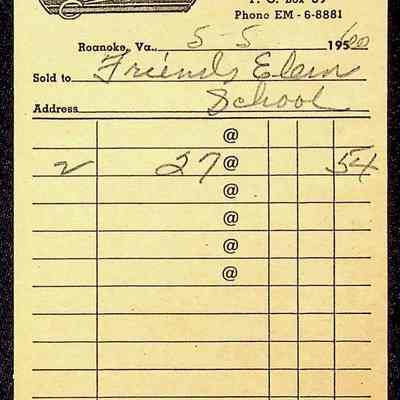 P. O. Box 69
Phone EM - 6-8881
Roanoke, Va., 5-5 1960
Sold to Friends Elem
Address School
@
2 27 @ 54
@
@
@
@